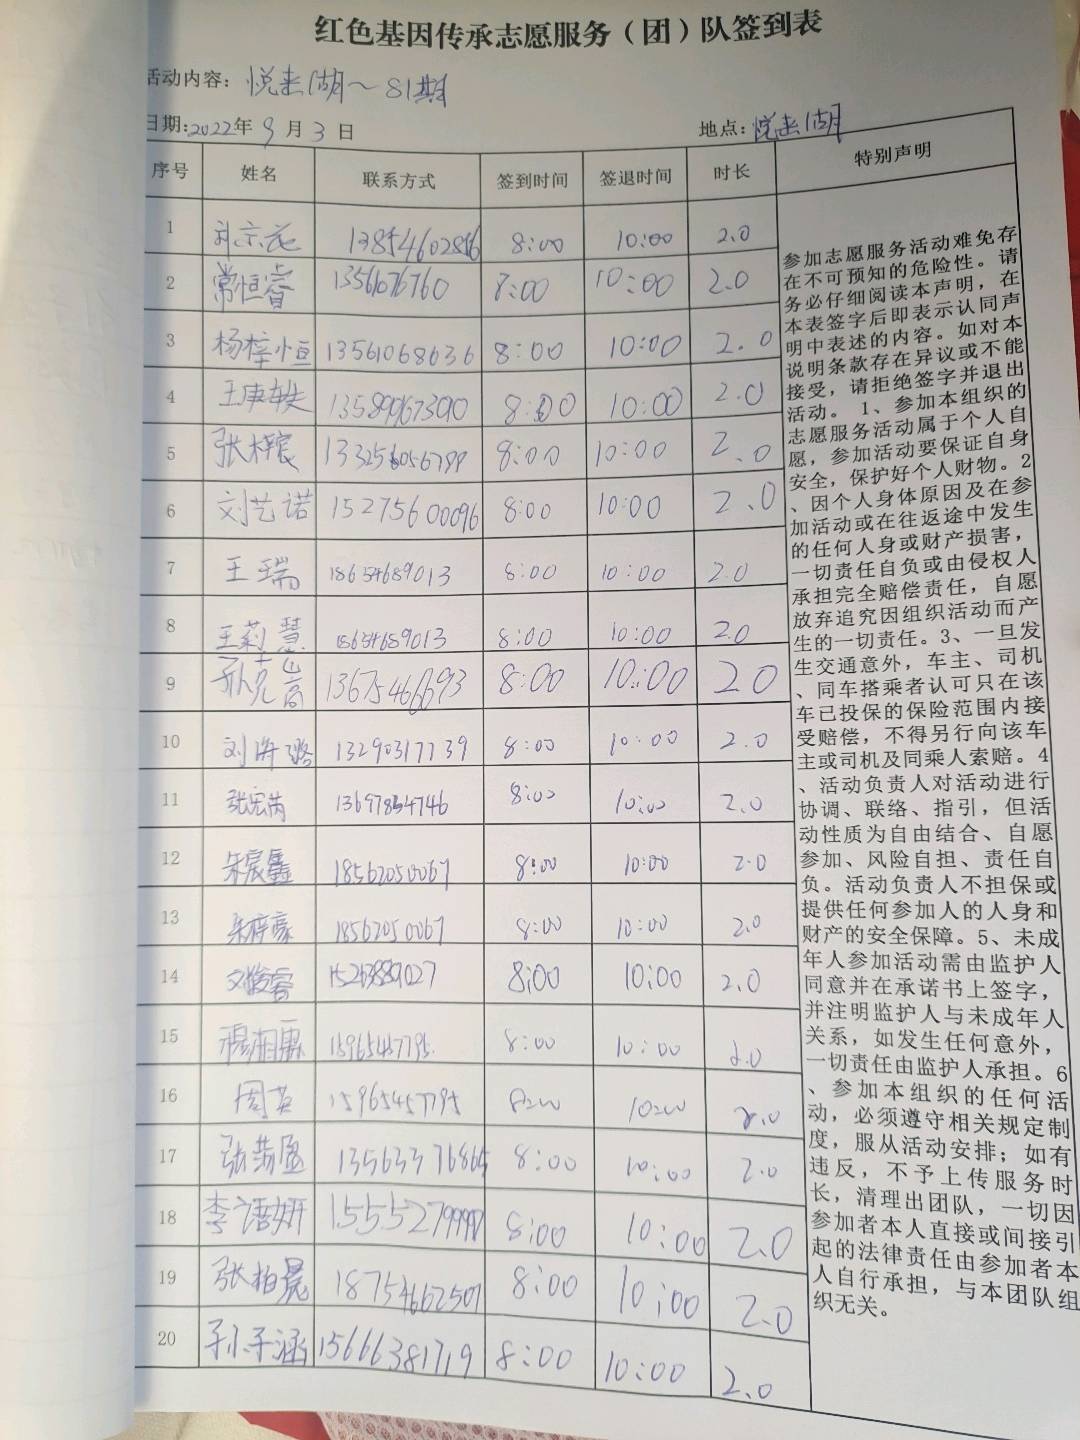 红色基因传承志愿服务（团）队签到表
活动内容：悦来湖～81期
日期:2022年9月3日 地点:悦来湖
序号 姓名 联系方式 签到时间 签退时间 时长 特别声明
1 13854602856 8:00 10:00 2.0
2 常恒睿 1356076760 8:00 10:00 2.0
3 杨梓恒 13561068636 8:00 10:00 2.0
4 王庚轶 8:00 10:00 2.0
5 张梓宸 8:00 10:00 2.0
6 刘艺诺 15275600096 8:00 10:00 2.0
7 王瑞 18654689013 8:00 10:00 2.0
8 王莉慧 18654689013 8:00 10:00 2.0
9 13675466693 8:00 10:00 2.0
10 13290317739 8:00 10:00 2.0
11 13697854746 8:00 10:00 2.0
12 朱宸鑫 18562050067 8:00 10:00 2.0
13 朱梓豪 18562050067 8:00 10:00 2.0
14 8:00 10:00 2.0
15 15965457795 8:00 10:00 2.0
16 周英 15965457795 8:00 10:00 2.0
17 13563376865 8:00 10:00 2.0
18 李语妍 8:00 10:00 2.0
19 张柏晨 18754662507 8:00 10:00 2.0
20 孙子涵 15666381719 8:00 10:00 2.0
参加志愿服务活动难免存
在不可预知的危险性。请
务必仔细阅读本声明，在
本表签字后即表示认同声
明中表述的内容。如对本
说明条款存在异议或不能
接受，请拒绝签字并退出
活动。1、参加本组织的
志愿服务活动属于个人自
愿，参加活动要保证自身
安全，保护好个人财物。2
、因个人身体原因及在参
加活动或在往返途中发生
的任何人身或财产损害，
一切责任自负或由侵权人
承担完全赔偿责任，自愿
放弃追究因组织活动而产
生的一切责任。3、一旦发
生交通意外，车主、司机
、同车搭乘者认可只在该
车已投保的保险范围内接
受赔偿，不得另行向该车
主或司机及同乘人索赔。4
、活动负责人对活动进行
协调、联络、指引，但活
动性质为自由结合、自愿
参加、风险自担、责任自
负。活动负责人不担保或
提供任何参加人的人身和
财产的安全保障。5、未成
年人参加活动需由监护人
同意并在承诺书上签字，
并注明监护人与未成年人
关系，如发生任何意外，
一切责任由监护人承担。6
、参加本组织的任何活
动，必须遵守相关规定制
度，服从活动安排；如有
违反，不予上传服务时
长，清理出团队，一切因
参加者本人直接或间接引
起的法律责任由参加者本
人自行承担，与本团队组
织无关。